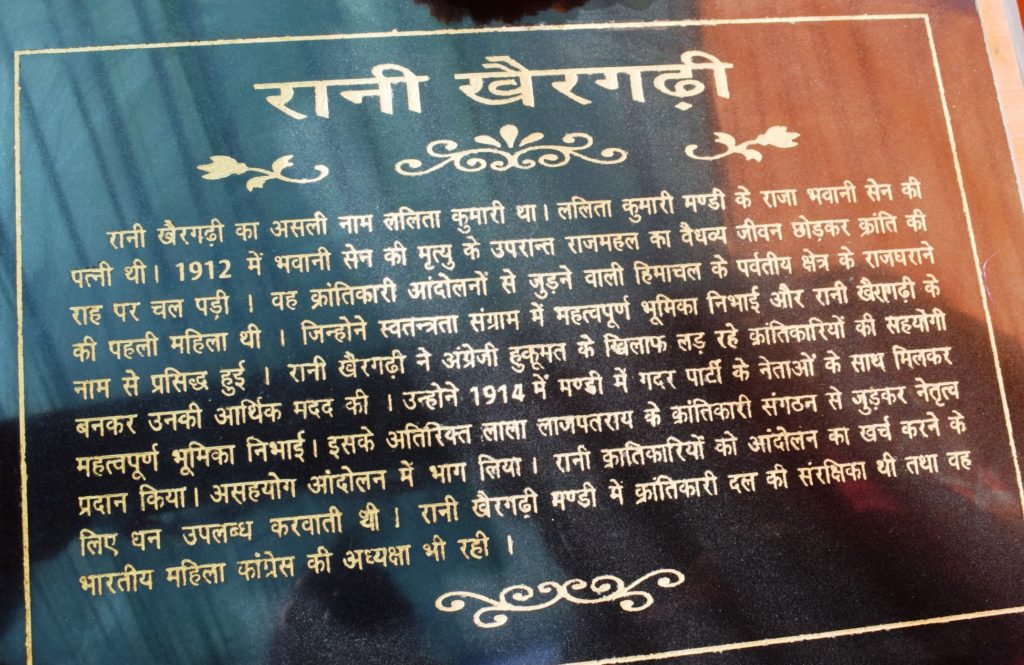 रानी खैरगढ़ी
रानी खैरगढ़ी का असली नाम ललिता कुमारी था। ललिता कुमारी मण्डी के राजा भवानी सेन की
पत्नी थी। 1912 में भवानी सेन की मृत्यु के उपरान्त राजमहल का वैधव्य जीवन छोड़कर क्रांति की
राह पर चल पड़ी । वह क्रांतिकारी आंदोलनों से जुड़ने वाली हिमाचल के पर्वतीय क्षेत्र के राजघराने
की पहली महिला थी । जिन्होने स्वतन्त्रता संग्राम में महत्वपूर्ण भूमिका निभाई और रानी खैरागढ़ी के
नाम से प्रसिद्ध हुई । रानी खैरगढ़ी ने अंग्रेजी हुकूमत के खिलाफ लड़ रहे क्रांतिकारियों की सहयोगी
बनकर उनकी आर्थिक मदद की । उन्होने 1914 में मण्डी में गदर पार्टी के नेताओं के साथ मिलकर
महत्वपूर्ण भूमिका निभाई। इसके अतिरिक्त लाला लाजपतराय के क्रांतिकारी संगठन से जुड़कर नेतृत्व
प्रदान किया। असहयोग आंदोलन में भाग लिया। रानी क्रातिकारियों को आंदोलन का खर्च करने के
लिए धन उपलब्ध करवाती थी । रानी खैरगढ़ी मण्डी में क्रांतिकारी दल की संरक्षिका थी तथा वह
भारतीय महिला कांग्रेस की अध्यक्षा भी रही ।